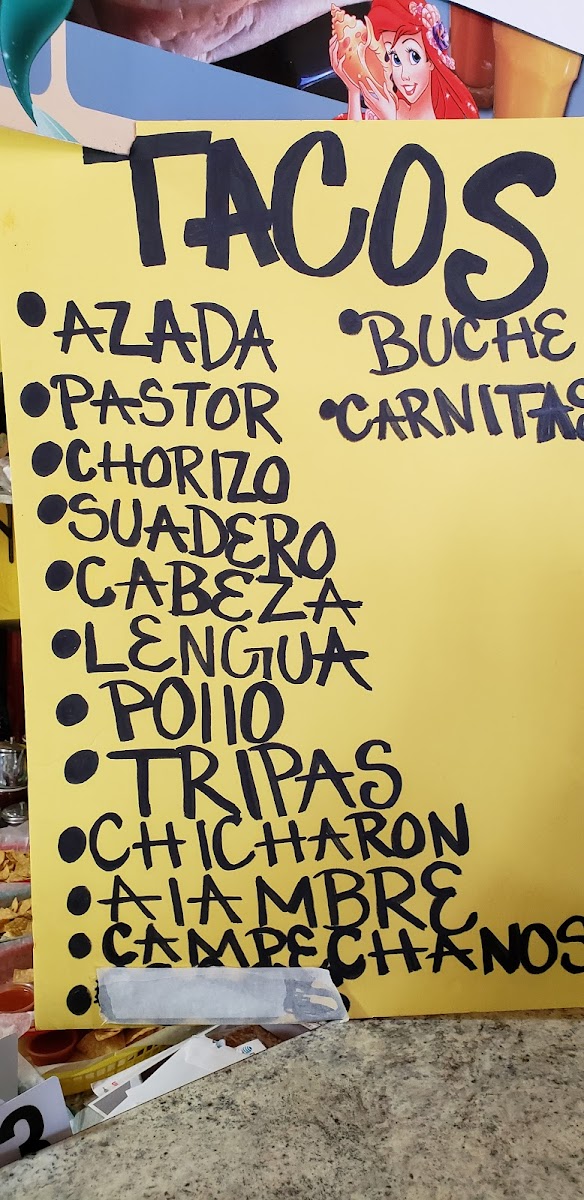 TACOS
• AZADA
• PASTOR
• CHORIZO
• SUADERO
• CABEZA
• LENGUA
• POllO
• TRIPAS
• CHICHARON
• AlAMBRE
• CAMPECHANOS
• BUCHE
• CARNITAS
3